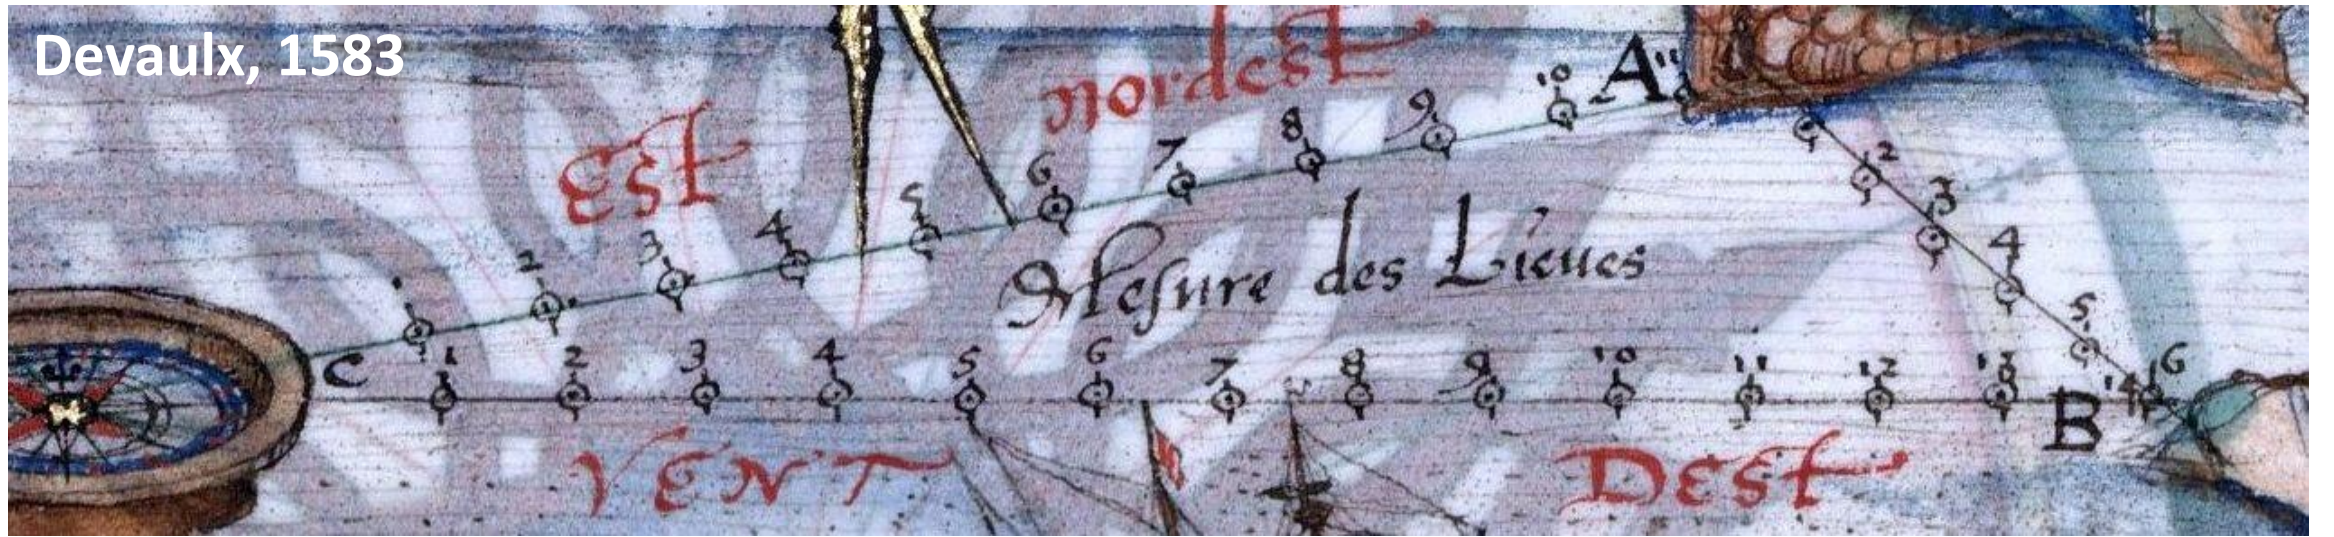 Devaulx, 1583
Est nordest
A
1 2 3 4 5 6 7 8 9 10 11
2 3 4 5 6
Mesure des Lieues
C
1 2 3 4 5 6 7 8 9 10 11 12 13 14
B
VENT DEst